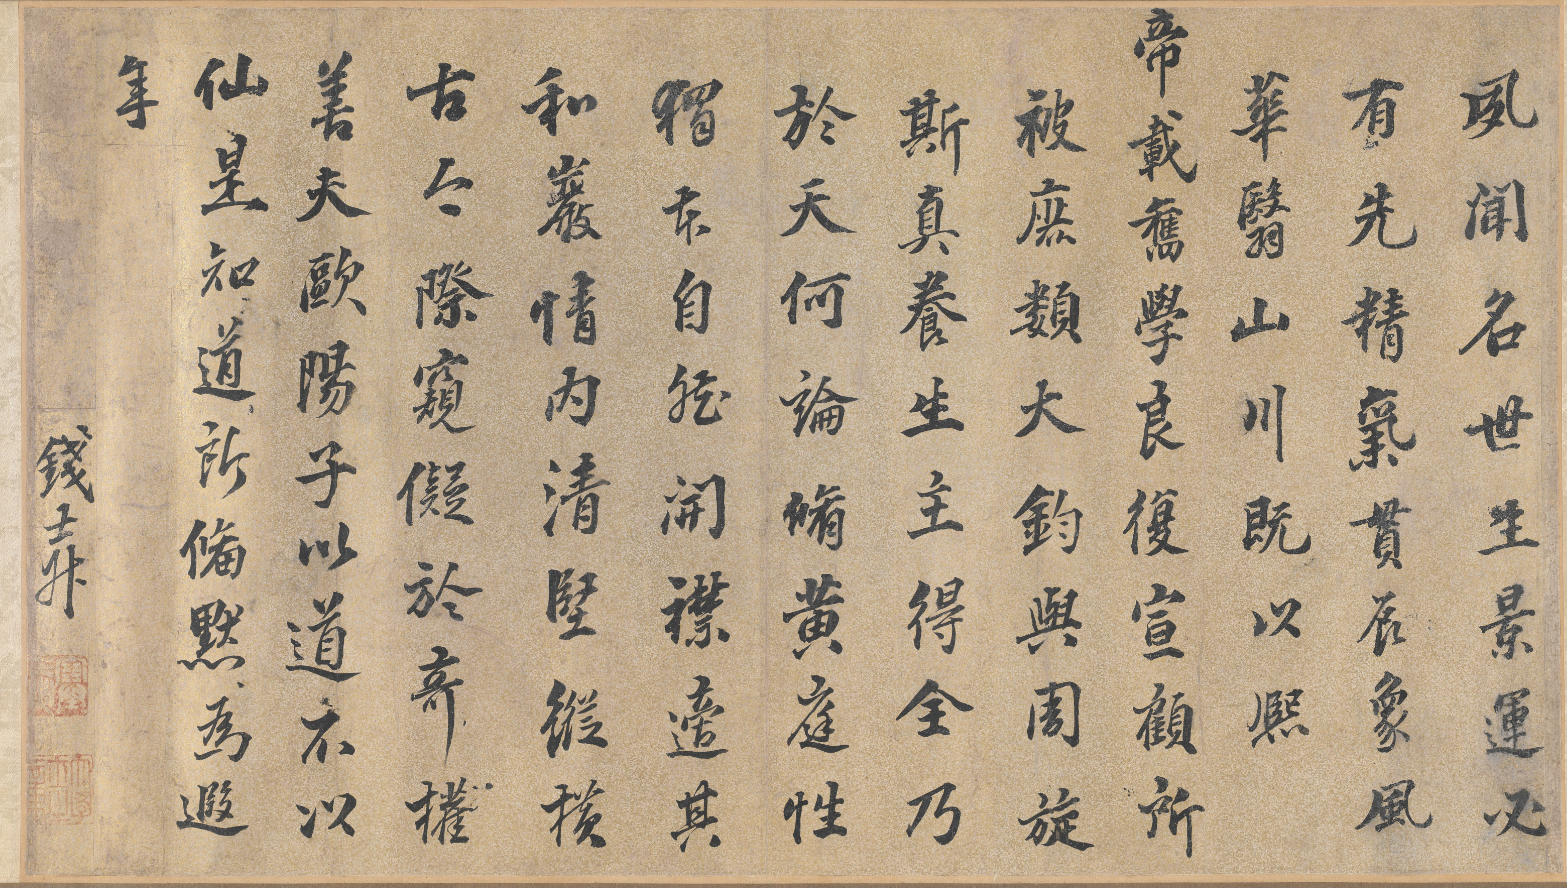 夙聞名世生景運必
有先精氣貫辰象風
華翳山川既以熙
帝載舊學良復宣顧所
被庶類大鈞與周旋
斯真養生主得全乃
於天何論脩黃庭性
獨本自然開襟適其
和巖情內清堅縱橫
古今際窺儗於奇權
善夫歐陽子以道不以
仙是知道所備默為遐
年
錢士升